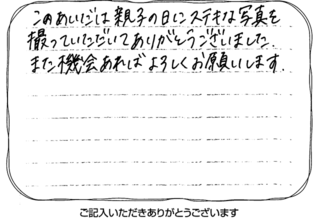 このあいだは親子の日にステキな写真を
撮っていただいてありがとうございました.
また機会あればよろしくお願いします.
ご記入いただきありがとうございます